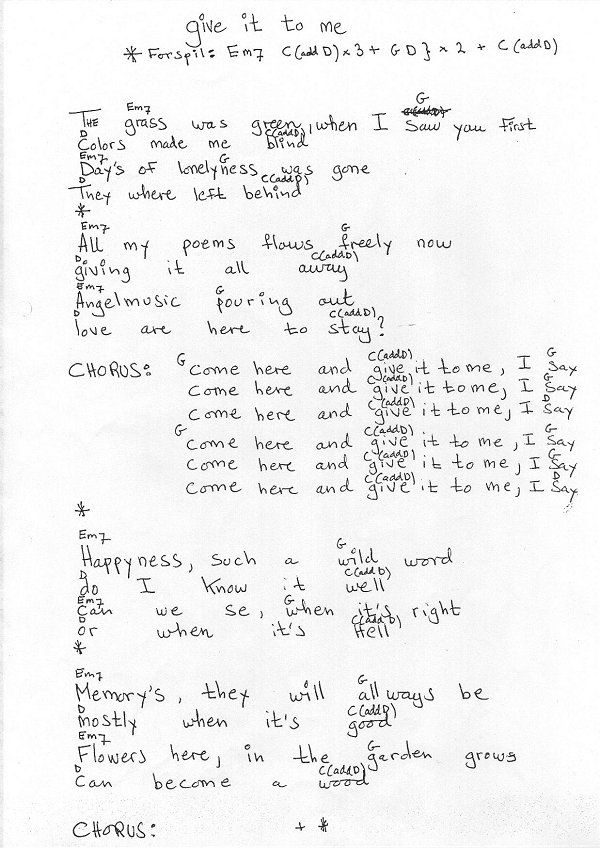 give it to me
* Forspil: Em7 C(addD) x 3 + G D } x 2 + C(addD)
Em7 G
THE grass was green, when I saw you first
D C(addD)
Colors made me blind
Em7 G
Day's of lonelyness was gone
D C(addD)
They where left behind
*
Em7 G
All my poems flows freely now
D C(addD)
giving it all away
Em7 G
Angelmusic pouring out
D C(addD)
love are here to stay?
G C(addD) G
CHORUS: come here and give it to me, I say
C(addD) G
come here and give it to me, I say
C(addD) D
come here and give it to me, I say
G C(addD) G
come here and give it to me, I say
C(addD) G
come here and give it to me, I say
C(addD) D
come here and give it to me, I say
*
Em7 G
Happyness, such a wild word
D C(addD)
do I know it well
Em7 G
Can we se, when it's right
D C(addD)
or when it's Hell
*
Em7 G
Memory's, they will allways be
D C(addD)
mostly when it's good
Em7 G
Flowers here, in the garden grows
D C(addD)
Can become a wood
CHORUS: + *